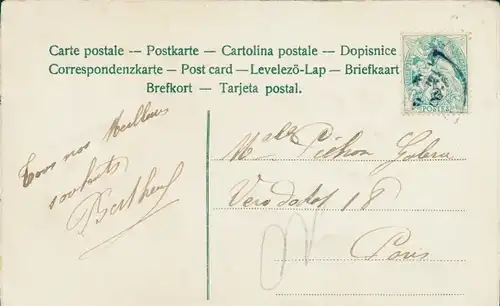 Carte postale — Postkarte — Cartolina postale — Dopisnice
Correspondenzkarte — Post card — Levelező-Lap — Briefkaart
Brefkort — Tarjeta postal.
POSTES
Tous nos Meilleurs
souhaits
Male Pichon
18
Paris